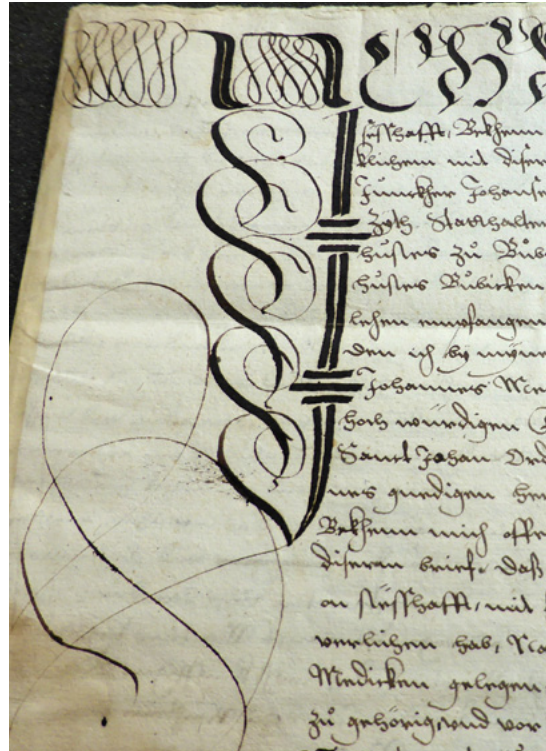 sesshafft, Bekhenn
klichem mit diser
Junckher Johanse
Zyth Statthalter
huses zů Bůb
huses Bůbicken
lehen empfangen
den ich by myne
Johannes Me
hoch würdigen
Sanct Johan Ord
nes gnedigen her
Bekhenn mich offe
disem brief, Daß
on sesshafft, mit
verlichen hab, Na
Medicken gelegen
zů gehörig, und vor